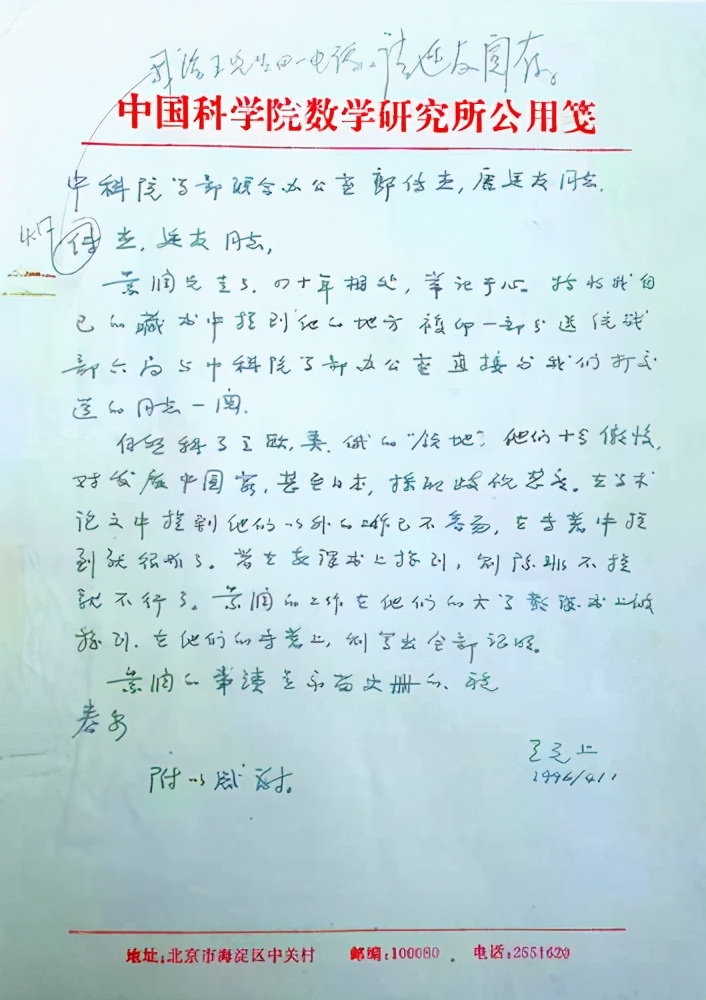 我给王先生回一电话。请廷友阅存。
中国科学院数学研究所公用笺
中科院学部联合办公室郭传杰,唐廷友同志.
传杰,廷友同志,
景润先走了.四十年相处,常记于心。特将我自
己的藏书中提到他的地方複印一部分送统战
部六局与中科院学部办公室直接与我们打交
道的同志一阅.
自然科学是欧,美,俄的"领地",他们十分傲慢,
对发展中国家,甚至日本,採取歧视态度。在学术
论文中提到他们以外的工作已不容易,在专著中提
到就很难了。若在教课书上提到,则除非不提
就不行了。景润的工作在他们的大学教课书上被
提到.在他们的专著上,则写出全部证明。
景润的事迹是永留史册的.祝
春安
王元上
1996/4/1
附以感谢。
地址:北京市海淀区中关村 邮编:100080 . 电话:2551620